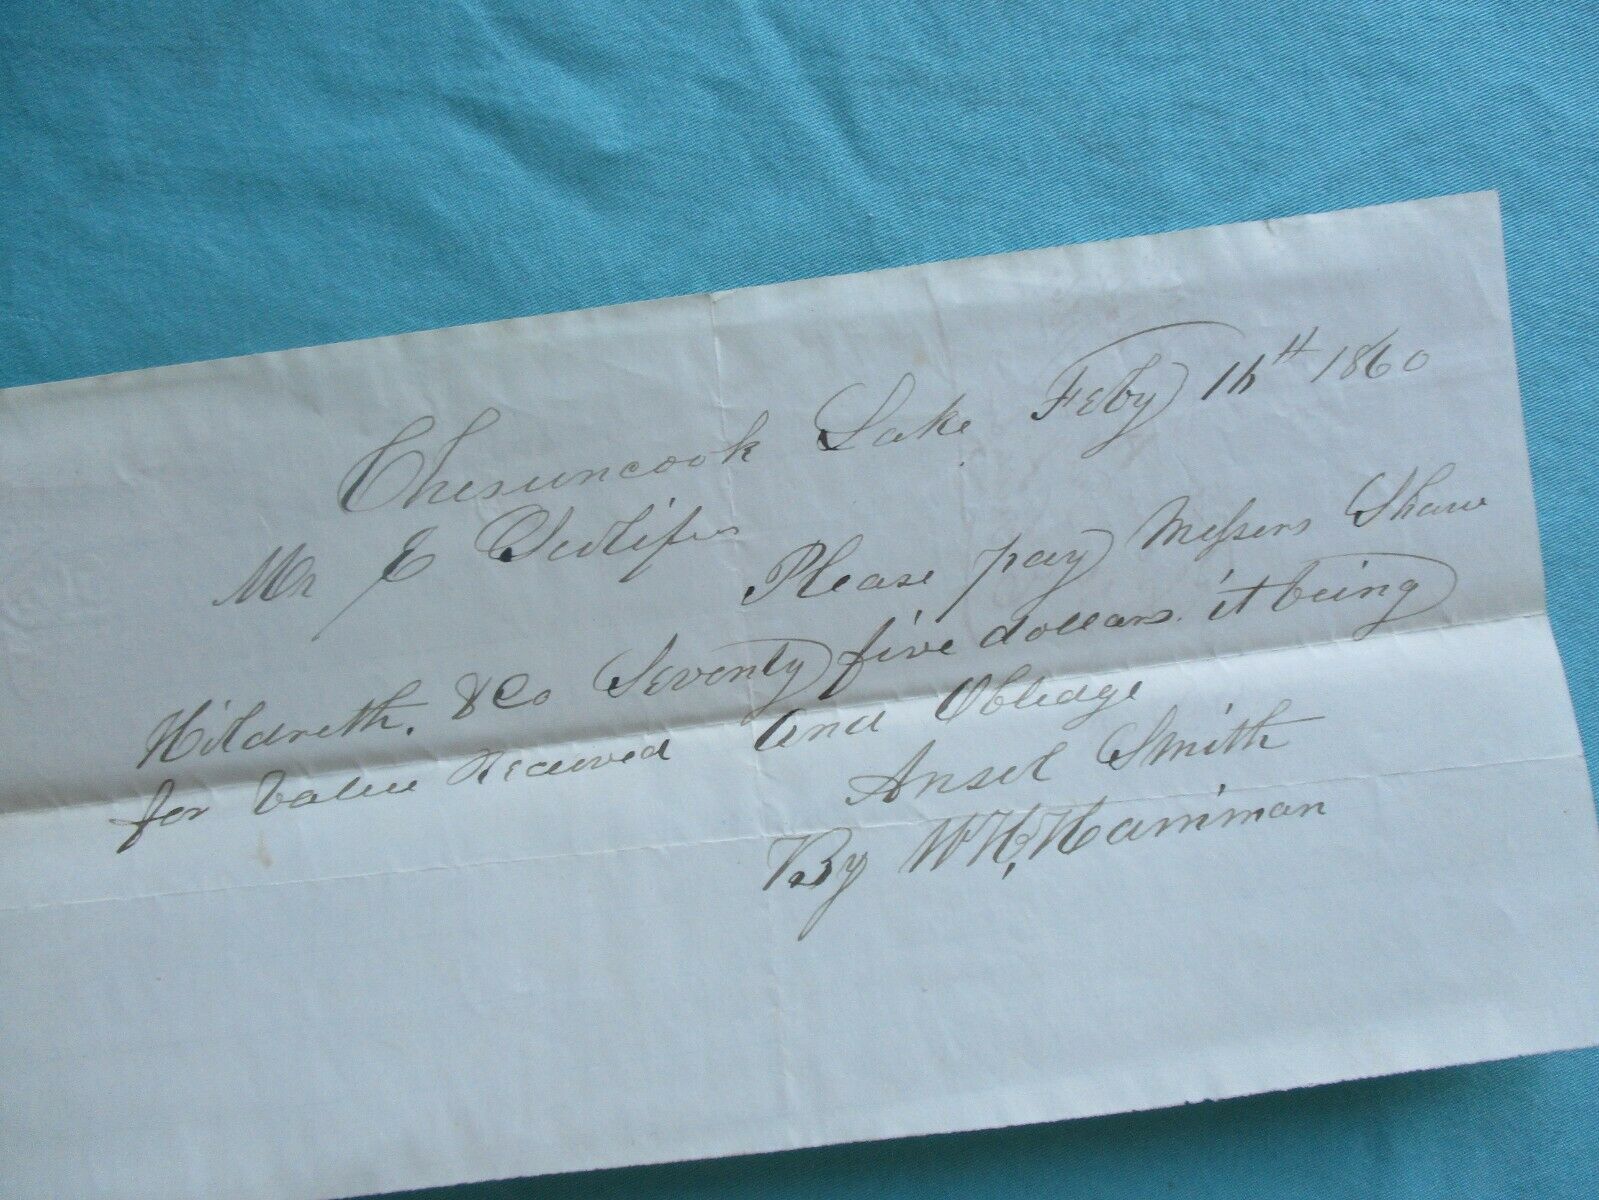 Chesuncook Lake Feby 1860
Mr E
Please pay Messers Shaw
Hildreth, & Co Seventy five dollars. it being
for Value Received and Obleage
Ansel Smith
By W H, Harriman